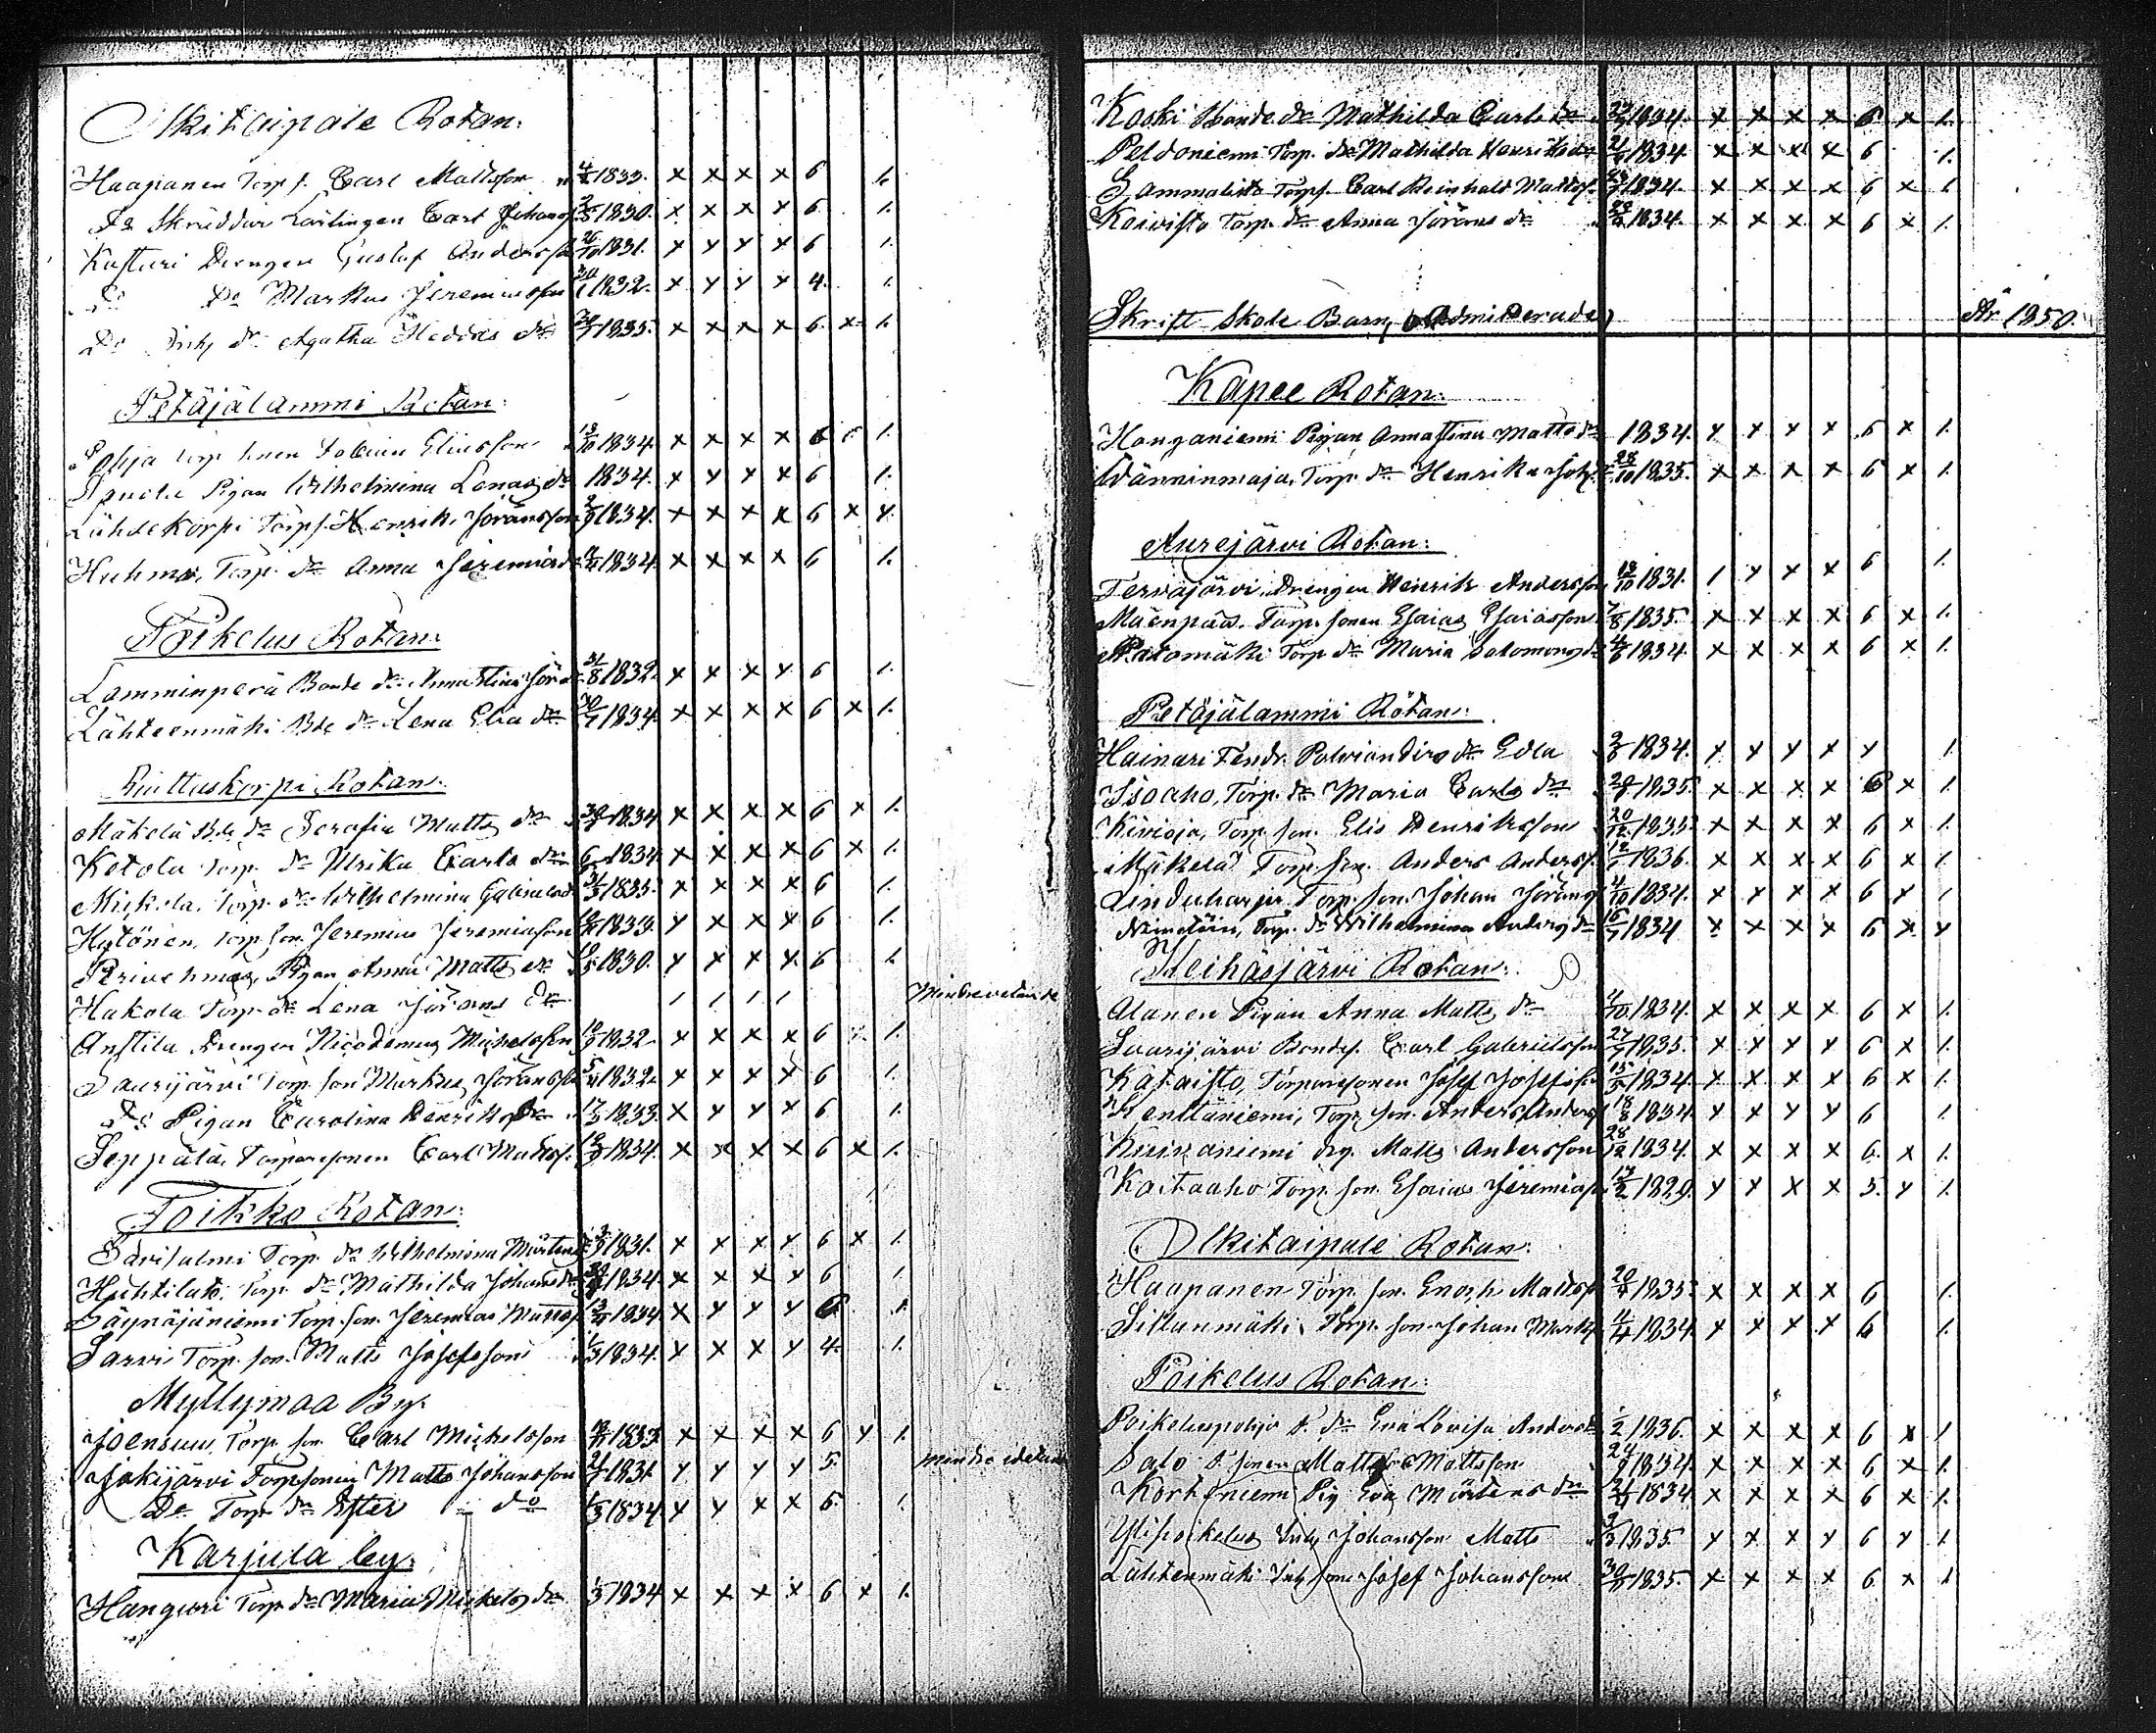 Olkitaipale Rotan:
Haapanen Torp s. Carl Mattsson 4/2 1833. x x x x 6 1.
Do Skräddare Lärlingen Carl Johans 1830. x x x x 6 1.
Kasturi Drengen Gustaf Andersson 26/10 1831. x x x x 6 1.
Do Do Markus Jeremiasson 1832. x x x x 4. 1.
Do Inhs dr Agatha Heddas dr 1835. x x x x 6 x 1.
Petäjälammi Rotan:
Pohja torp sonen Eliasson 18/10 1834. x x x x 6 1.
Pigan Wilhelmina Jonas dr 1834. x x x x 6 1.
Lähdekorpi Torp s. Henrik Jöransson 1834. x x x x 6 x x
Huhmar, Torp. dr Anna Jeremias dr 1834 x x x x 6 1.
Poikelus Rotan:
Lamminperä Bonde dr Anna Stina Jör 31/8 1832 x x x x 6 1.
Lähteenmäki Bde dr Lena Elia dr 1834. x x x x 6 x 1.
Riuttaskorpi Rotan:
Mäkelä Bde dr Serafia Matts dr 1834 x x x x 6 x 1.
Ketola Torp. dr Ulrika Carls dr 1834 x x x x 6 x 1.
Mickola, Torp. dr Wilhelmina 1835. x x x x 6 1.
Hytönen, torp. son. Jeremias Jeremiasson 1833 x x x x 6 1.
Pigan Anna Matts dr 1830. x x x x 6 1.
Hakola Torp. dr Lena Jörans dr / / / / Mindre vetande
Anttila Drengen Nicodemus Michelsson 1832 x x x x 6 x 1.
Saurijärvi Torp. son Markus Jöransson 1832 x x x x 6 1.
Do Pigan Carolina Henriks dr 17/3 1833. x x x x 6 1.
Seppälä, Torparesonen Carl Mattss. 1834. x x x x 6 x 1.
Toikko Rotan:
Sarisalmi Torp. dr Wilhelmina Mårtens 1831. x x x x 6 x 1.
Huhtilato, Torp. dr Mathilda Johans dr 1834. x x x x 6 1.
Säynäjäniemi Torp. son. Jeremias Mattss. 1834. x x x x 6 1.
Sarvi Torp. son. Matts Josefsson 1834. x x x x 4. 1.
Myllymaa By:
Joensuu, Torp. son. Carl Michelsson 1833 x x x x 6 x 1.
Jokijärvi Torpsonen Matts Johansson 1831 x x x x 5. mindre vetande
Do Torp dr Ester do 1/3 1834. x x x x 6. 1.
Karjula by:
Hanguri Torp dr Maria Michels dr 1/3 1834 x x x x 6 x 1.
Koski Bonde dr Mathilda Carls dr 1834. x x x x 6 x 1.
Peldoniemi Torp. dr Mathilda Henriks dr 1834 x x x x 6 1.
Sammalisto Torps. Carl Reinhold Mattss. 1834. x x x x 6 x 1
Koivisto Torp. dr Anna Jörans dr 1834. x x x x 6 x 1.
Skrift Skole Barn, (Admitterade) År 1850.
Kapee Rotan:
Honganiemi Pigan Anna Stina Matts dr 1834. x x x x 6 x 1.
Wänninmaja, Torp. dr Henrika Joh. 28/10 1835. x x x x 6 x 1.
Aurejärvi Rotan:
Tervajärvi, Drengen Henrik Andersson 18/10 1831. / x x x 6 1.
Mäenpää Torp. sonen Esaias Esaiasson 7/8 1835. x x x x 6 x 1.
Palomäki Torp dr Maria Salomons dr 4/6 1834. x x x x 6 x 1.
Petäjälammi Rotan:
Hainari Fendr. dr Edla 1834. x x x x x 1.
Isoaho, Torp. dr Maria Carls dr 1835 x x x x 6 x 1
Kivioja, Torp. son. Elis Henriksson 20/12 1835 x x x x 6 x 1.
Mäkelä Torp. son. Anders Anderss. 12/1 1836. x x x x 6 x 1.
Linduharju Torp. son. Johan Jörans 4/10 1834. x x x x 6 x 1.
Torp. dr Wilhelmina Anders dr 16/7 1834 x x x x 6 x x
Keihäsjärvi Rotan:
Alanen Pigan Anna Matts dr 4/10 1834. x x x x 6 x 1.
Saurijärvi Bondes. Carl Gabrielsson 27/7 1835. x x x x 6 x 1.
Kataisto, Torparesonen Josef Josefsson 15/5 1834. x x x x 6 x 1.
Kenttäniemi, Torp son. Anders Anders 18/8 1834. x x x x 6 1.
Kuivaniemi drg. Matts Andersson 28/12 1834. x x x x 6. x 1.
Koitaaho Torp. son. Esaias Jeremias 1829. x x x x 5. x 1.
Olkitaipale Rotan:
Haapanen Torp. son. Enosh Mattss 1835 x x x x 6 1.
Sillanmäki, Torp. son Johan Mark. 11/4 1834 x x x x 6 1.
Poikelus Rotan:
Poikeluspohja T. dr Eva Lovisa Anders dr 1/2 1836. x x x x 6 x 1
Salo T. sonen Matts Mattsson 1834. x x x x 6 x 1.
Kortteniemi Pig Eva Mårtens dr 1834 x x x x 6 x 1.
Ylipoikelus Inhs Johansson Matts 1835. x x x x 6 x 1.
Lähtenmäki Inh. son Josef Johansson 1835. x x x x 6 x 1